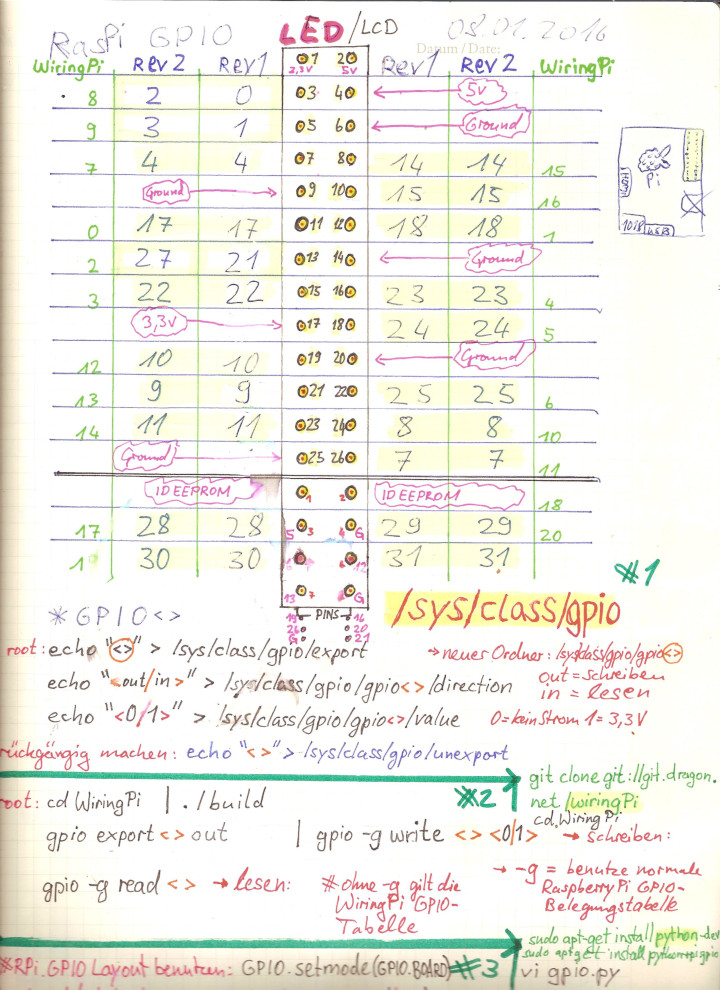 RasPi GPIO LED/LCD 08.01.2016
Datum / Date:
WiringPi Rev2 Rev1 1 2 Rev1 Rev2 WiringPi
3,3V 5V
8 2 0 3 4 5V
9 3 1 5 6 Ground
7 4 4 7 8 14 14 15
Ground 9 10 15 15 16
0 17 17 11 12 18 18 1
2 27 21 13 14 Ground
3 22 22 15 16 23 23 4
3,3V 17 18 24 24 5
12 10 10 19 20 Ground
13 9 9 21 22 25 25 6
14 11 11 23 24 8 8 10
Ground 25 26 7 7 11
ID EEPROM 1 2 ID EEPROM 18
17 28 28 5 3 4 G 29 29 20
30 30 6 12 31 31
13 7 G
PINS
19 16
26 20
G 21
HDMI
Pi
10/8
USB
#1
* GPIO<> /sys/class/gpio
root: echo "<>" > /sys/class/gpio/export → neuer Ordner: /sys/class/gpio/gpio<>
echo "<out/in>" > /sys/class/gpio/gpio<>/direction out = schreiben
in = lesen
echo "<0/1>" > /sys/class/gpio/gpio<>/value 0=kein Strom 1=3,3V
rückgängig machen: echo "<>" > /sys/class/gpio/unexport
git clone git://git.dragon.
net/wiringPi
root: cd WiringPi | ./build #2
cd WiringPi
gpio export <> out | gpio -g write <> <0/1> → schreiben:
gpio -g read <> → lesen: # ohne -g gilt die
WiringPi GPIO-
Tabelle
→ -g = benutze normale
RaspberryPi GPIO-
Belegungstabelle
sudo apt-get install python-dev
sudo apt-get install python-rpi.gpio
*RPi.GPIO Layout benutzen: GPIO.setmode(GPIO.BOARD) #3 vi gpio.py